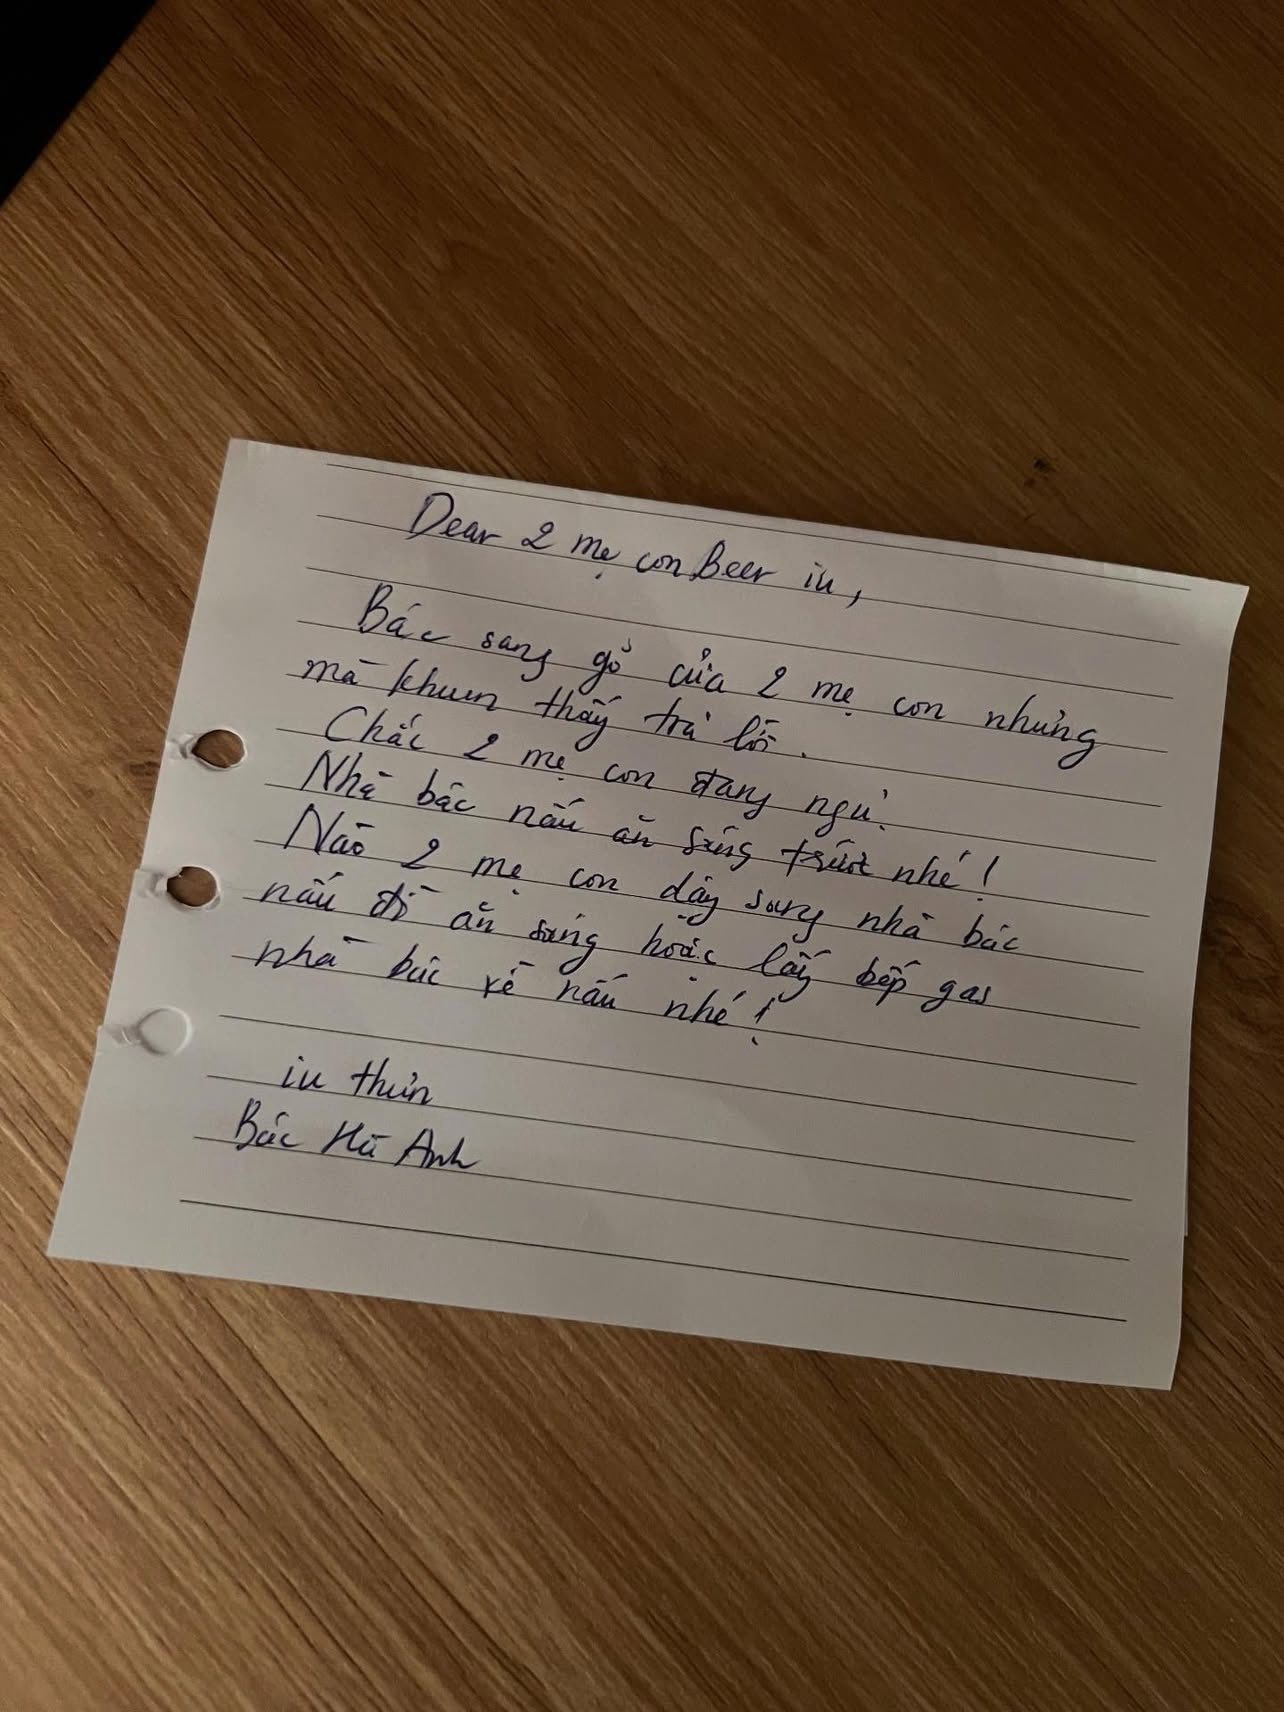 Dear 2 mẹ con Beer iu,
Bác sang gõ cửa 2 mẹ con nhưng
mà khum thấy trả lời.
Chắc 2 mẹ con đang ngủ.
Nhà bác nấu ăn sáng trước nhé!
Nào 2 mẹ con dậy sang nhà bác
nấu đồ ăn sáng hoặc lấy bếp gas
nhà bác về nấu nhé!
iu thưn
Bác Hà Anh